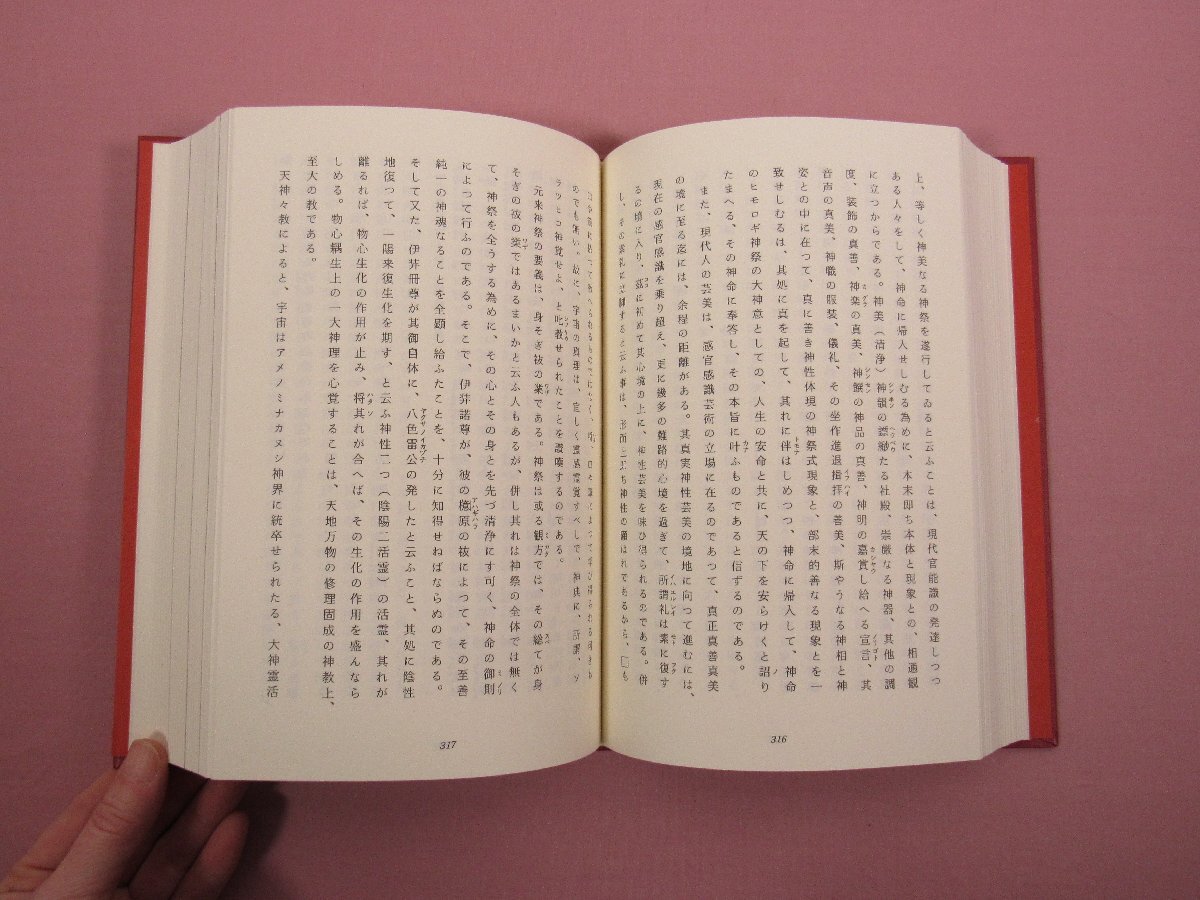 上、等しく神美なる神祭を遂行してゐると云ふことは、現代官能識の発達しつつ
ある人々をして、神命に帰入せしむる為めに、本末即ち本体と現象との、相憑観
に立つからである。神美（清浄）神韻の縹緲たる社殿、崇厳なる神器、其他の調
度、装飾の真善、神楽の真美、神饌の神品の真善、神明の嘉賞し給へる宣言、其
音声の真美、神職の服装、儀礼、その坐作進退揖拝の善美、斯やうなる神相と神
姿との中に在つて、真に善き神性体境の神祭式現象と、部末的善なる現象とを一
致せしむるは、其処に真を起して、其れに伴はしめつつ、神命に帰入して、神命
のヒモロギ神祭の大神意としての、人生の安命と共に、天の下を安らけくと詔り
たまへる、その神命に奉答し、その本旨に叶ふものであると信ずるのである。
また、現代人の芸美は、感官感識芸術の立場に在るのであつて、真正真善真美
の境に至る迄には、余程の距離がある。其真実神性芸美の境地に向つて進むには、
現在の感官感識を乗り超え、更に幾多の難路的心境を過ぎて、所謂礼は楽に復す
るの境に入り、茲に初めて其心境の上に、神性芸美を味ひ得られるのである。併
し、その
316
のでも無い。故に、宇宙の真理は、宜しく霊感霊覚すべしで、神典に、所謂、ソ
ラツヒコ神覚せよ、と叱教せられたことを讃嘆するのである。
元来神祭の要義は、身そぎ祓の業である。神祭は或る観方では、その総てが身
そぎの祓の業ではあるまいかと云ふ人もあるが、併し其れは神祭の全体では無く
て、神祭を全うする為めに、その心とその身とを先づ清浄にす可く、神命の御則
によつて行ふのである。そこで、伊弉諾尊が、彼の檍原の祓によつて、その至善
純一の神魂なることを全顕し給ふたことを、十分に知得せねばならぬのである。
そして又た、伊弉冊尊が其御自体に、八色雷公の発したと云ふこと、其処に陰性
地復つて、一陽来復生化を期す、と云ふ神性二つ（陰陽二活霊）の活霊、其れが
離るれば、物心生化の作用が止み、将其れが合へば、その生化の作用を盛んなら
しめる。物心耦生上の一大神理を心覚することは、天地万物の修理固成の神教上、
至大の教である。
天神々教によると、宇宙はアメノミナカヌシ神界に統卒せられたる、大神霊活
317